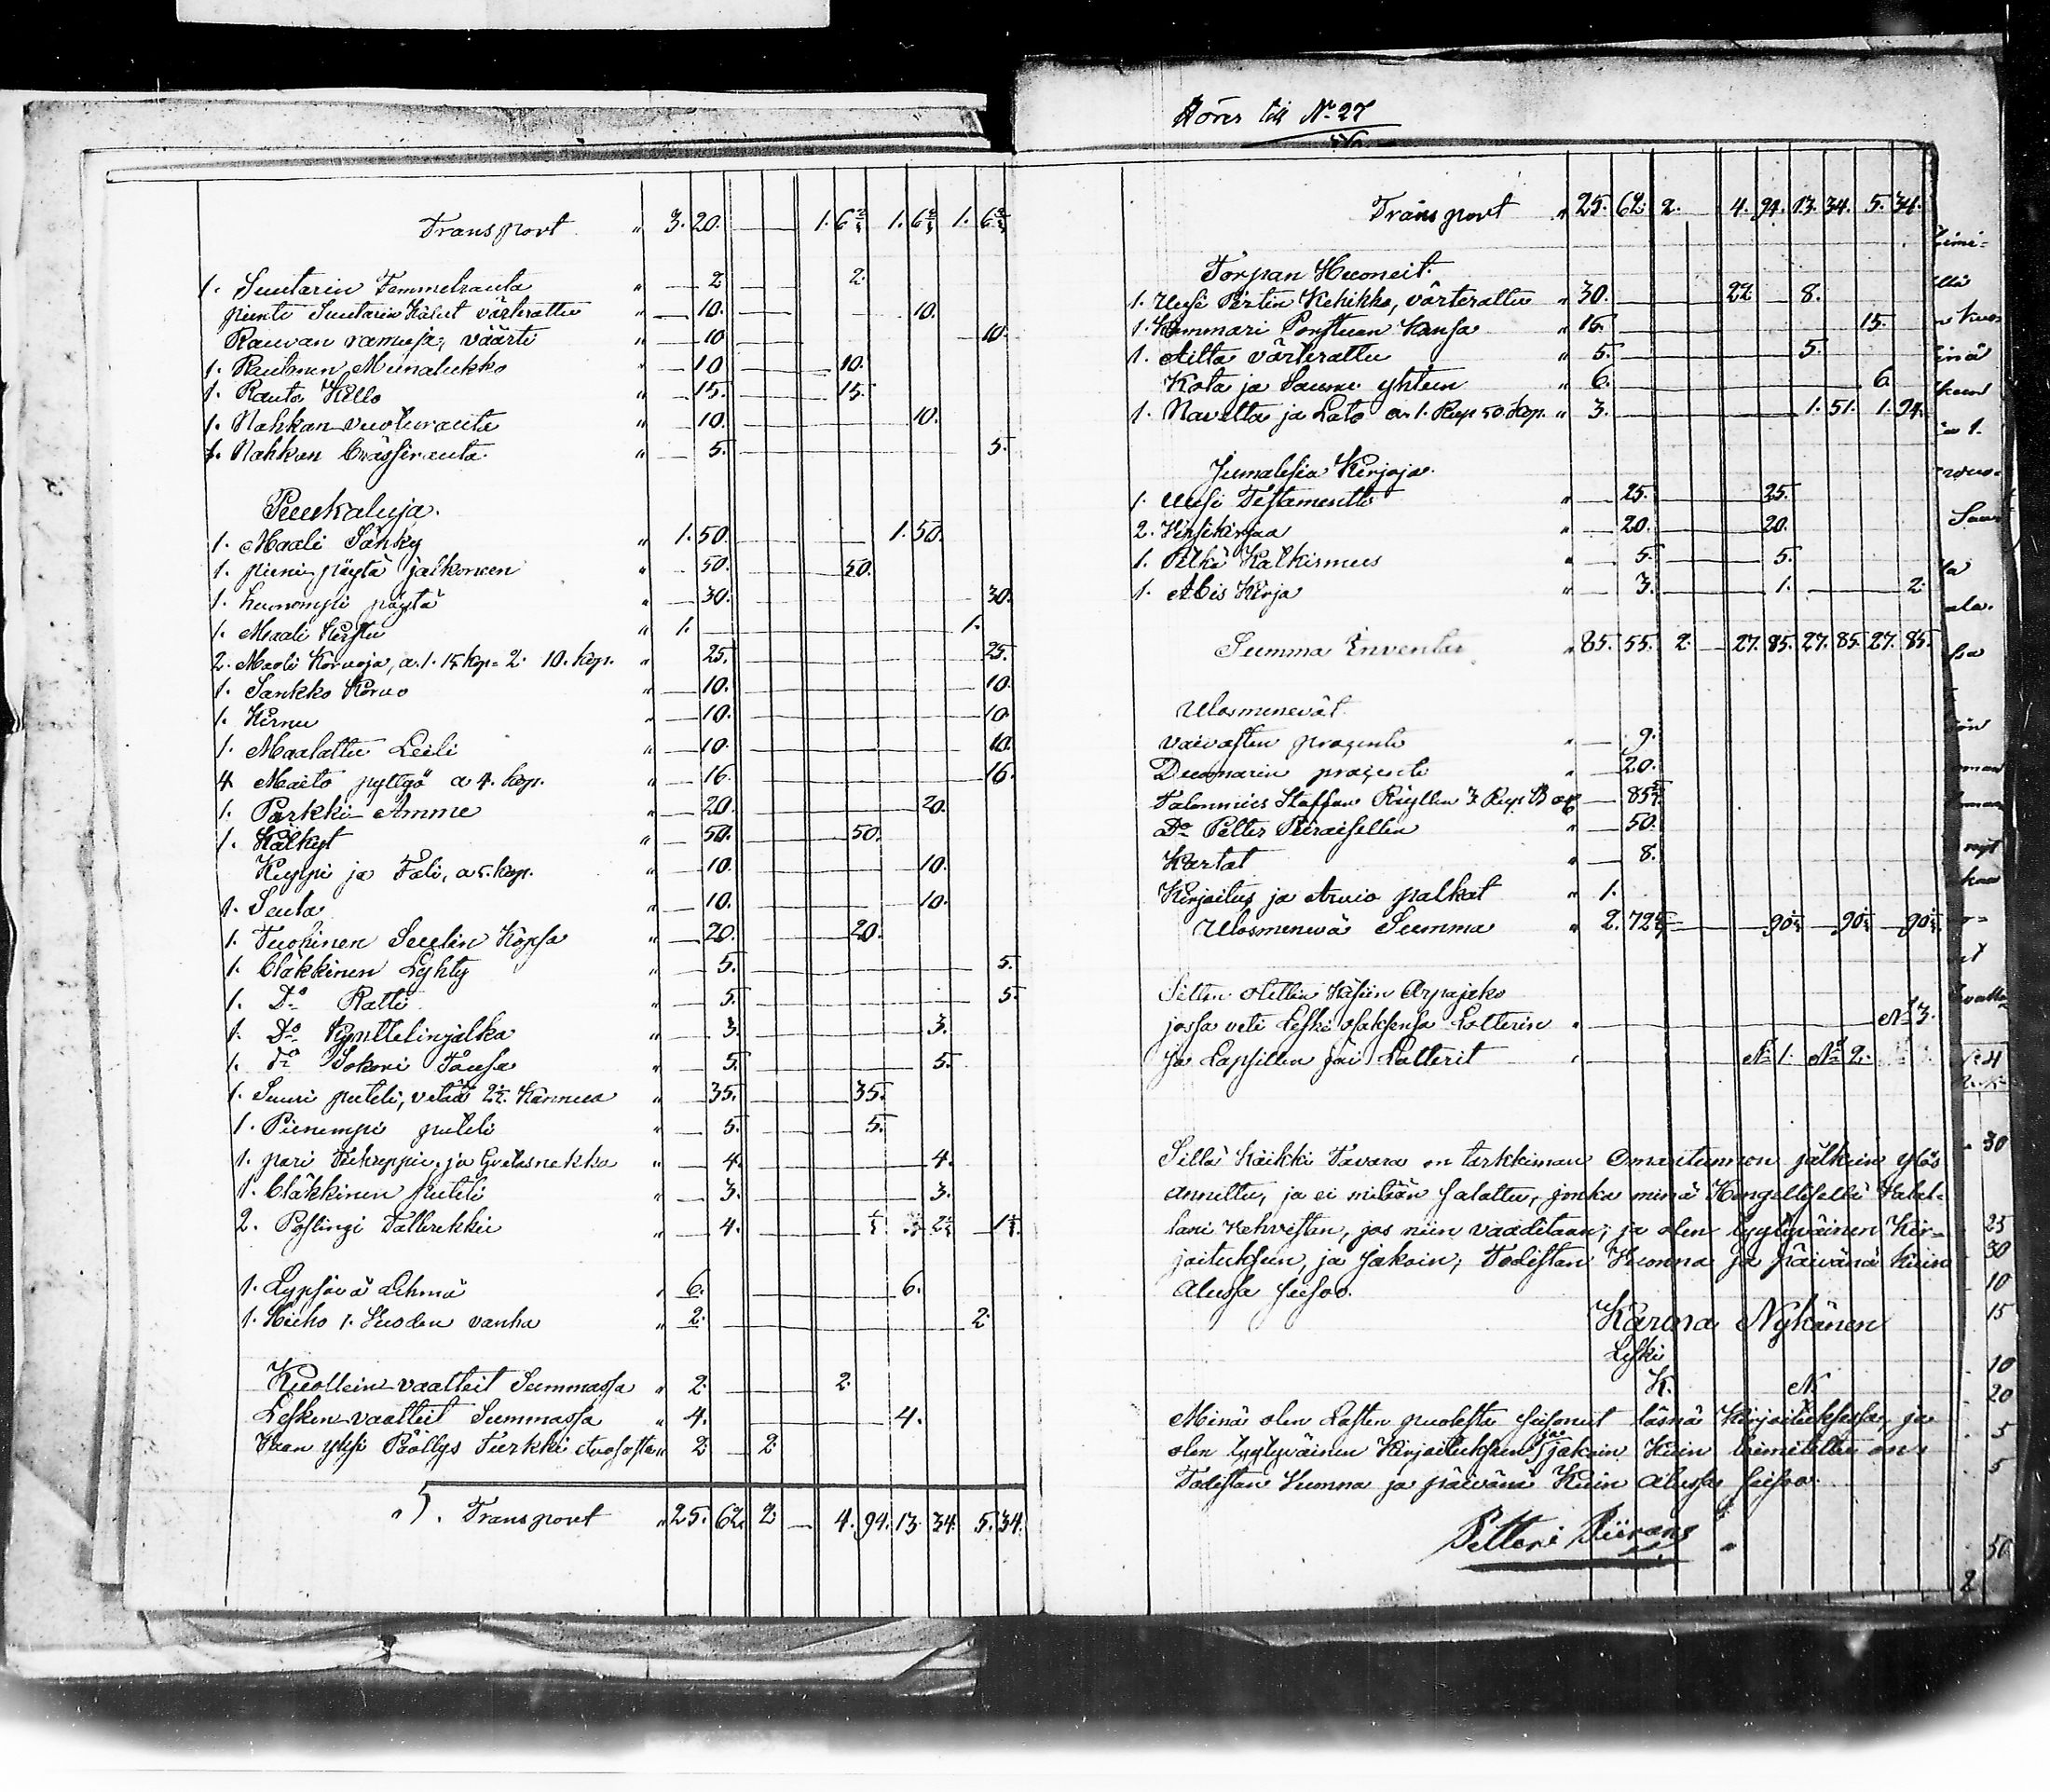 Hörer till No 27
Transport " 3. 20. 1. 6 2/3 1. 6 2/3 1. 6 2/3
1. Suutarin Temmelrauta " 2 2.
pieniä Suutarin Kalut värterattu " 10. 10.
Rauvan ramuja, väärti " 10 10.
1. Rautanen Munalukko " 10 10.
1. Rauta Kello " 15. 15.
1. Nahkan vuolurauta " 10. 10.
1. Nahkan Crässirauta " 5. 5.
Puukaluja.
1. Maali Sänky " 1. 50. 1. 50.
1. pieni pöytä jalkoneen " 50. 50.
1. huonompi pöytä " 30. 30.
1. Maali Kirstu " 1. 1.
2. Maali Korvoja, a. 1. 15 kop = 2. 10. kop. " 25. 25.
1. Sankko Korvo " 10. 10.
1. Kirnu " 10. 10.
1. Maalattu Leili " 10. 10.
4 Maito pyttyö a 4. kop. " 16. 16.
1. Parkki Amme " 20. 20.
1. Kälkyt " 50. 50.
Kuppi ja Fali, a 5. kop. " 10. 10.
1. Seula " 10. 10.
1. Tuohinen Suolin Köpsa " 20. 20.
1. Cläkkinen Lyhty " 5. 5.
1. Do Ratti " 5. 5.
1. Do Kynttelinjalka " 3. 3.
1. Do Sokori Tousa " 5. 5.
1. Suuri puteli, vetää 2 1/2 Kannua " 35. 35.
1. Pienempi puteli " 5. 5.
1. pari Tekuppia ja Grätasnekka " 4. 4.
1. Cläkkinen puteli " 3. 3.
2. Poslingi Tallrekkia " 4.
1. Lypsävä Lehmä " 6. 6.
1. Hieho 1. Vuoden vanha " 2. 2
Kuollein vaatteit Summassa " 2. 2.
Lesken vaatteit Summassa " 4. 4.
Vaan yksi Päällys Turkki " 2. 2.
Transport " 25. 62. 2. 4. 94. 13. 34. 5. 34.
Transport " 25. 62. 2. 4. 94. 13. 34. 5. 34.
Torpan Huoneit.
1. Uusi Pirtin Kehikko, värterattu " 30. 22 8.
1. Kammari Porstuan Kansa " 15. 15.
1. Aitta värterattu " 5. 5.
Kota ja Sauna yhteen " 6. 6
1. Navetta ja Lato a. 1. Rup 50. kop. " 3. 1. 51. 1. 94.
Jumalisia Kirjoja.
1. Uusi Testamentti " 25. 25.
2. Virsikirjaa " 20. 20.
1. Pitkä Katkismus " 5. 5.
1. Abis Kirja " 3. 1. 2.
Summa Inventar " 85. 55. 2. 27. 85. 27. 85. 27. 85.
Ulosmenevät.
vaivasten procenti " 9.
Duomarin procenti " 20.
Talonmies Staffan 85
Do Petter Piiraisellen " 50.
Kartat " 8.
Kirjoitus ja Arvio palkat " 1.
Ulosmenevä Summa " 2. 72 90 90 90
Sitten otettin Käsiin Arpajako
jossa veti Leski osaksensa Lotterin " No 3.
Ja Lapsillen jäi Lotterit " No 1. No 2.
Sillä Kaikki Tavara on tarkkiman Omantunnon jälkeen ylös
annettu, ja ei mitään salattu, jonka minä Hengellisellä Valal-
lani Vahvistan, jos niin vaaditaan; ja olen tyytyväinen Kir-
joituksen, ja jakoin; Todistan Vuonna ja päivänä Kuin
Alussa seisoo.
Karina Nykänen
Leski
K. N.
Minä olen Lasten puolesta seisonut läsnä Kirjoituksessa, ja
olen tyytyväinen Kirjoituksen ja jakoin Kuin toimitettu on.
Todistan Vuonna ja päivänä Kuin Alussa seisoo.
Petteri Piirans